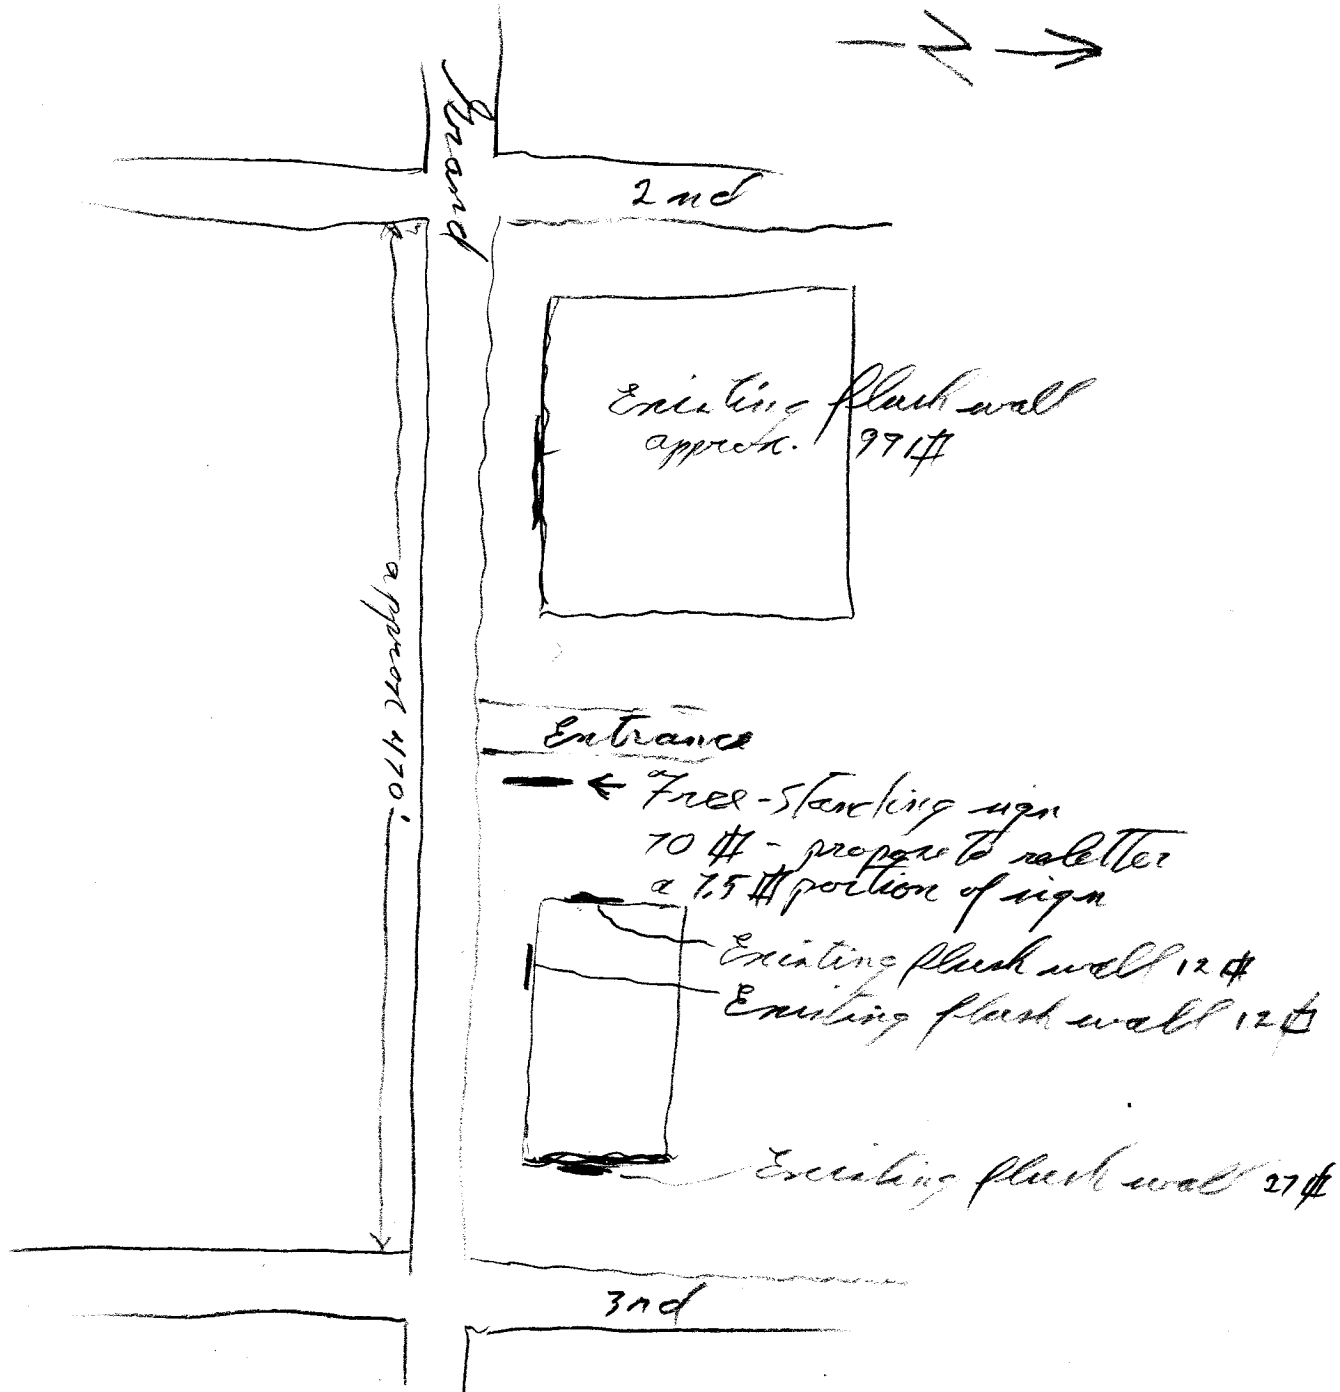 N
Grand
2nd
Existing flush wall
approx. 99 #
approx 470'
Entrance
Free-standing sign
70 # - propose to reletter
a 7.5 # portion of sign
Existing flush wall 12 #
Existing flush wall 12 #
Existing flush wall 27 #
3rd